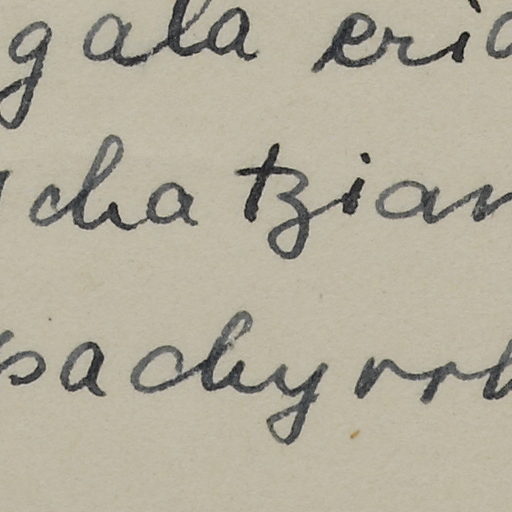 gala eric
chatzian
pachyrrh